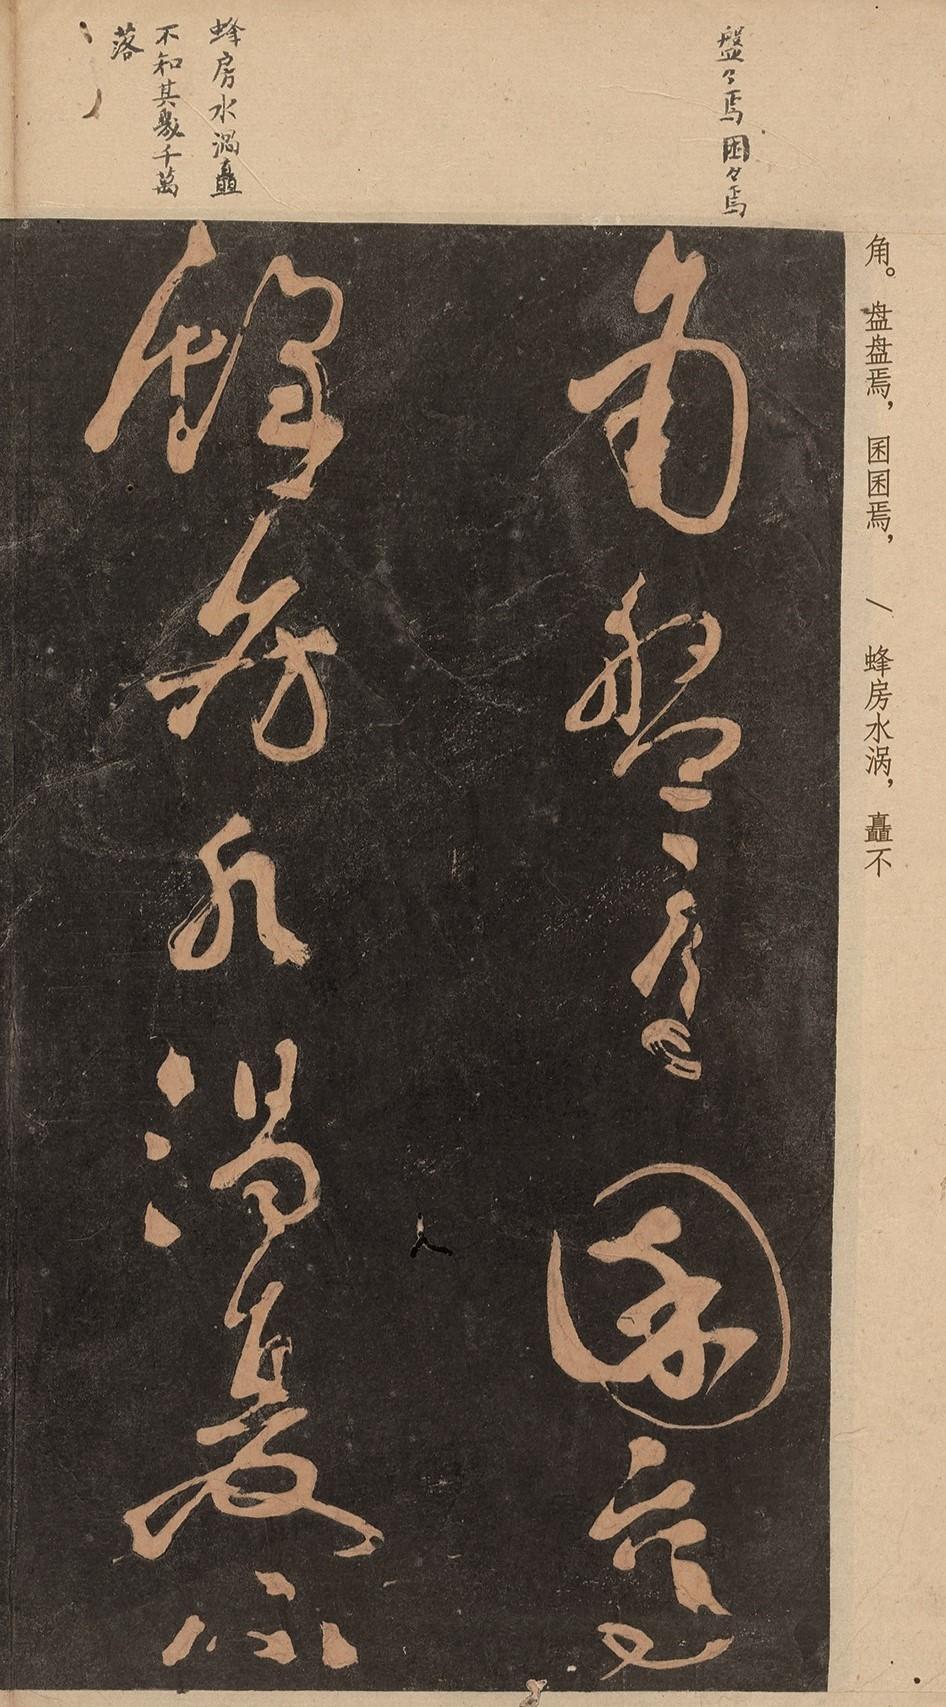 盤々焉囷々焉
蜂房水渦矗
不知其幾千萬
落
角。盘盘焉，囷囷焉，/蜂房水涡，矗不
角盤盤焉囷囷焉
蜂房水渦矗不